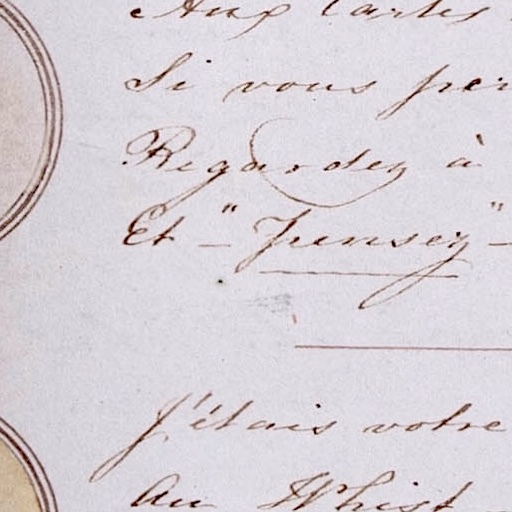 Aux Cartes
Si vous per
Regardez à
Et - "Pensez" -
J'étais votre
Au Whist